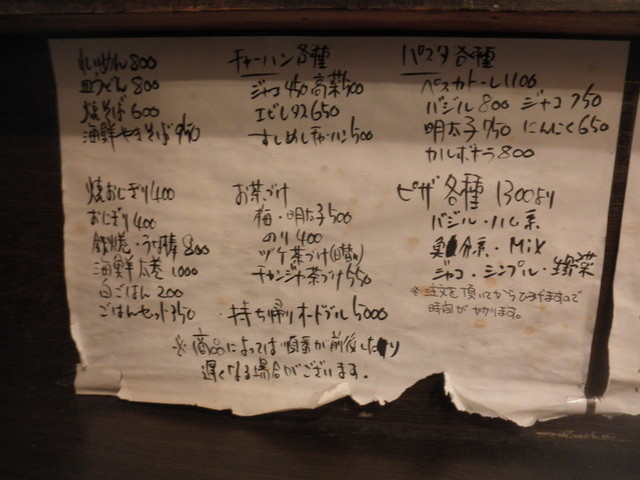 れいめん 800
皿うどん 800
焼そば 600
海鮮やきそば 950
焼おしぎり 400
おにぎり 400
海鮮太巻 1000
白ごはん 200
ごはんセット 350
チャーハン各種
ジャコ 450 高菜 500
エビレタス 650
すしめしチャーハン 500
お茶づけ
梅・明太子 500
のり 400
ヅケ茶づけ(日替り)
チャンジャ茶づけ 550
・持ち帰りオードブル 5000
パスタ各種
ペスカトーレ 1100
バジル 800 ジャコ 750
明太子 750 にんにく 650
カルボナーラ 800
ピザ各種 1300より
バジル・ハム系
・Mix
ジャコ・シンプル・野菜
※注文を頂いてから ますので
時間がかかります。
※商品によっては順番が前後したり
遅くなる場合がございます。